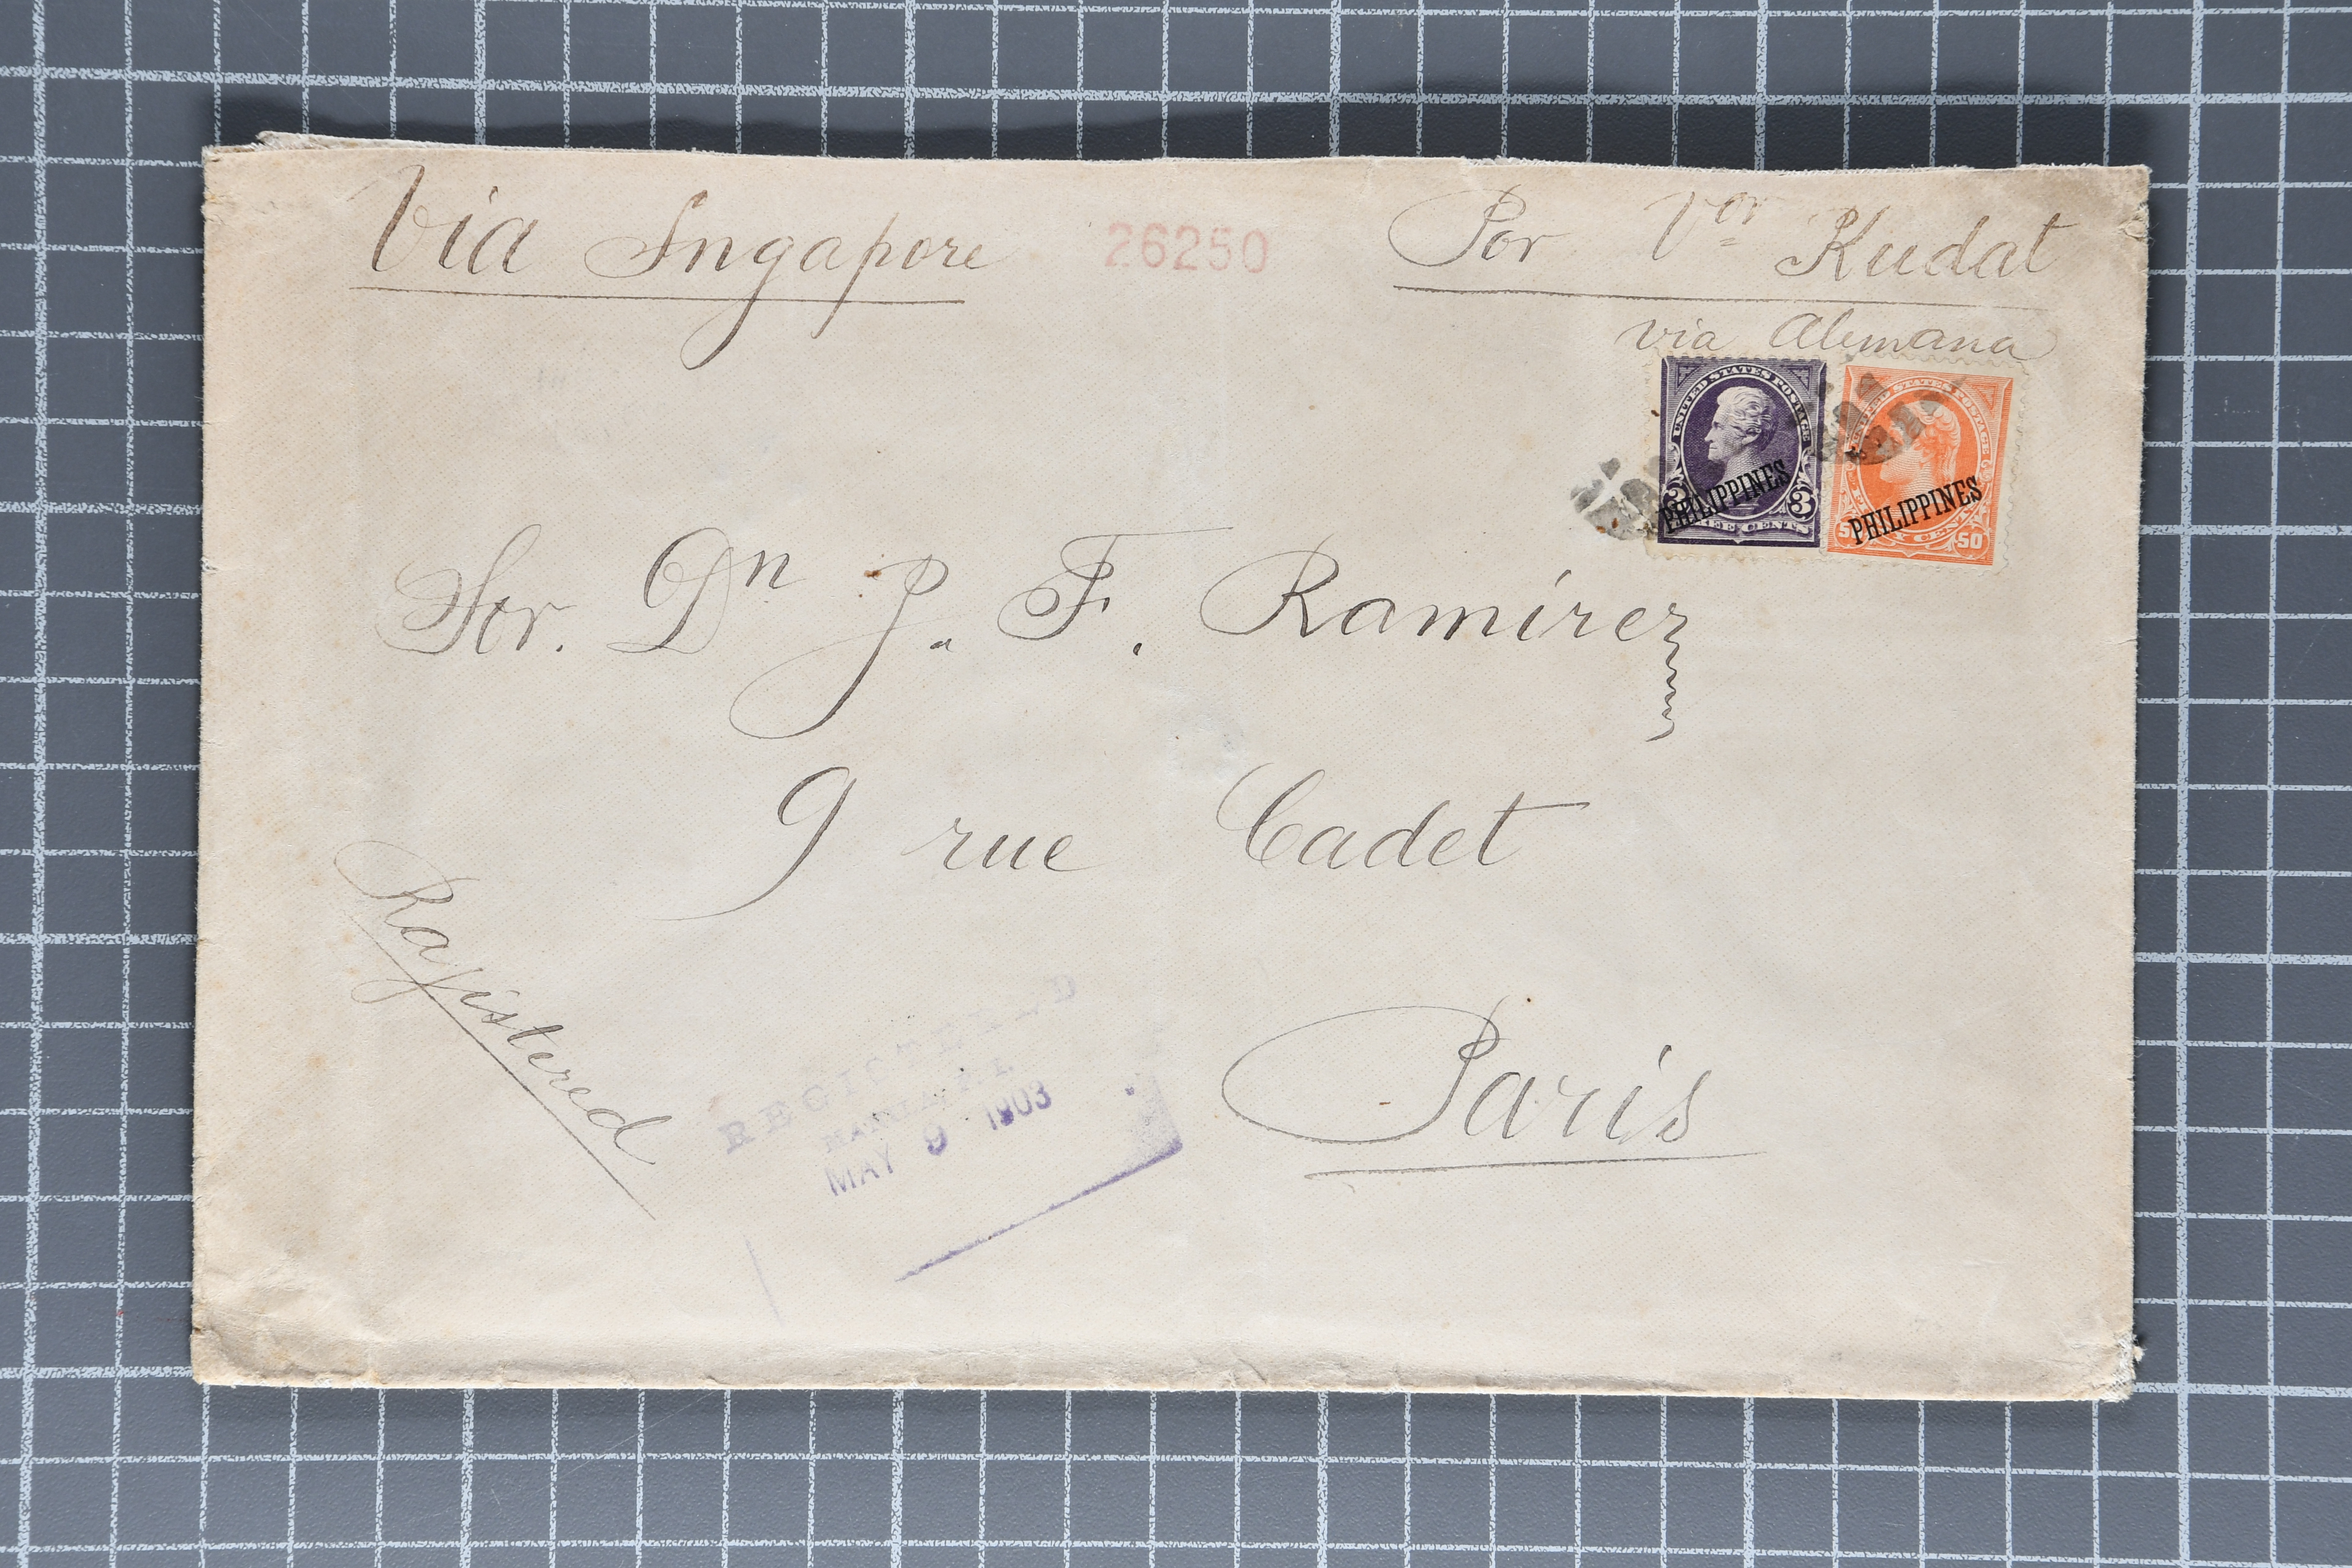 Via Singapore
26250
Por Vor Kudat
via Alemana
UNITED STATES POSTAGE
PHILIPPINES
3 3
THREE CENTS
UNITED STATES POSTAGE
PHILIPPINES
50 50
FIFTY CENTS
Sor. Dn J. F. Ramirez
9 rue Cadet
Paris
Rajistered
REGISTERED
MANILA P. I.
MAY 9 1903